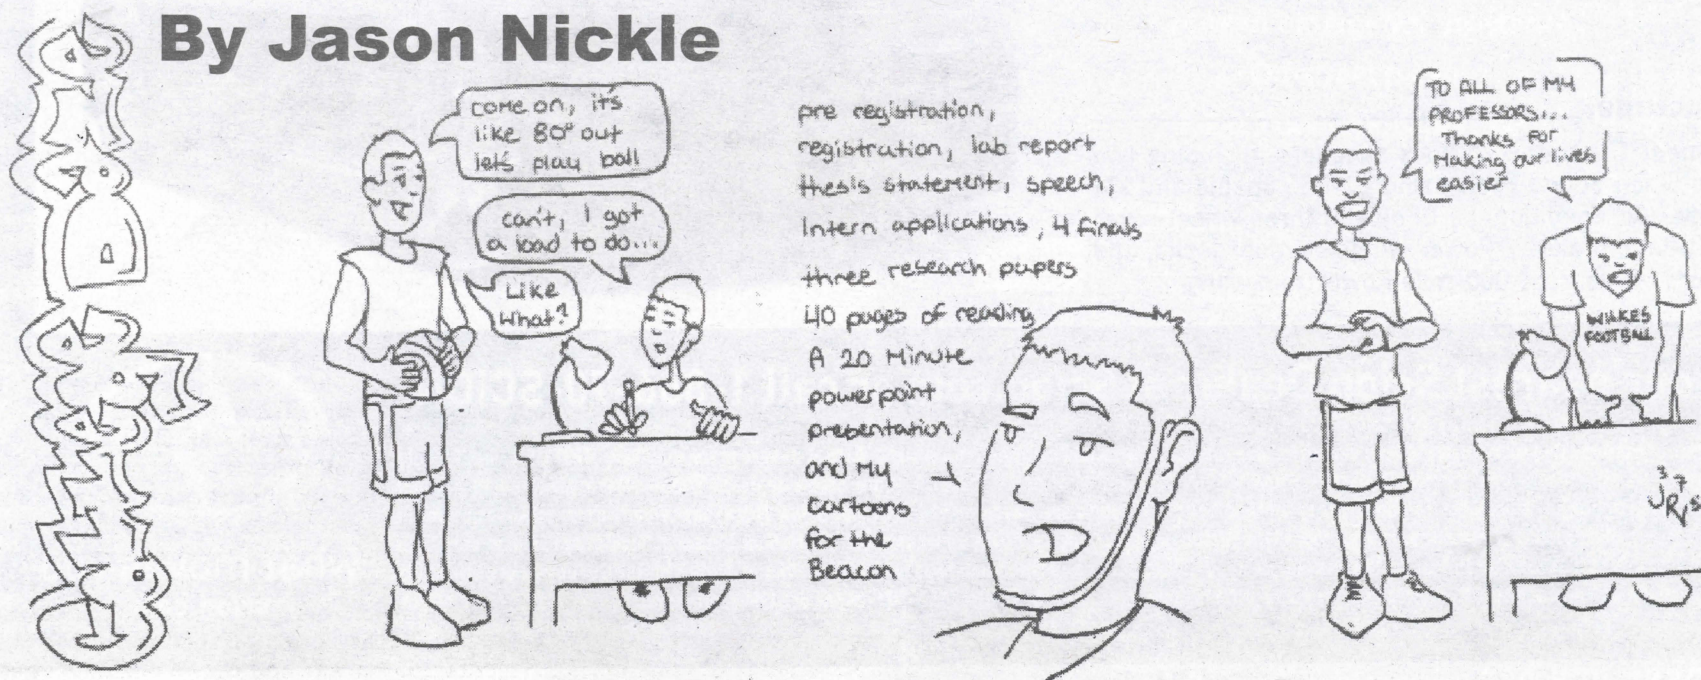 By Jason Nickle
COME ON, it's
like 80° out
let's play ball
can't, I got
a load to do...
Like
What?
pre registration,
registration, lab report
thesis statement, speech,
Intern applications, 4 finals
three research papers
40 pages of reading
A 20 Minute
powerpoint
presentation,
and My
cartoons
for the
Beacon
TO ALL OF MY
PROFESSORS...
Thanks for
Making our lives
easier
WILKES
FOOTBALL